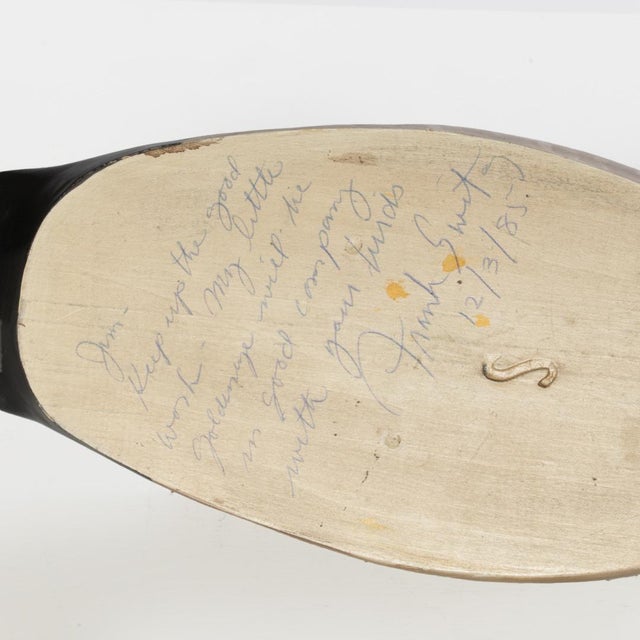 Jim -
Keep up the good
work. My little
Goldeneye will be
in good company
with your birds
Frank
12/3/85
S